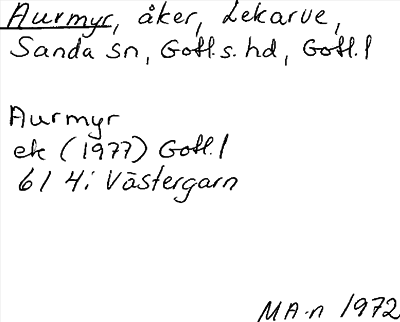 Aurmyr, åker, Lekarve,
Sanda sn, Gotl.s.hd, Gotl.l
Aurmyr
ek (1977) Gotl.l
6I 4i Västergarn
MA-n 1972